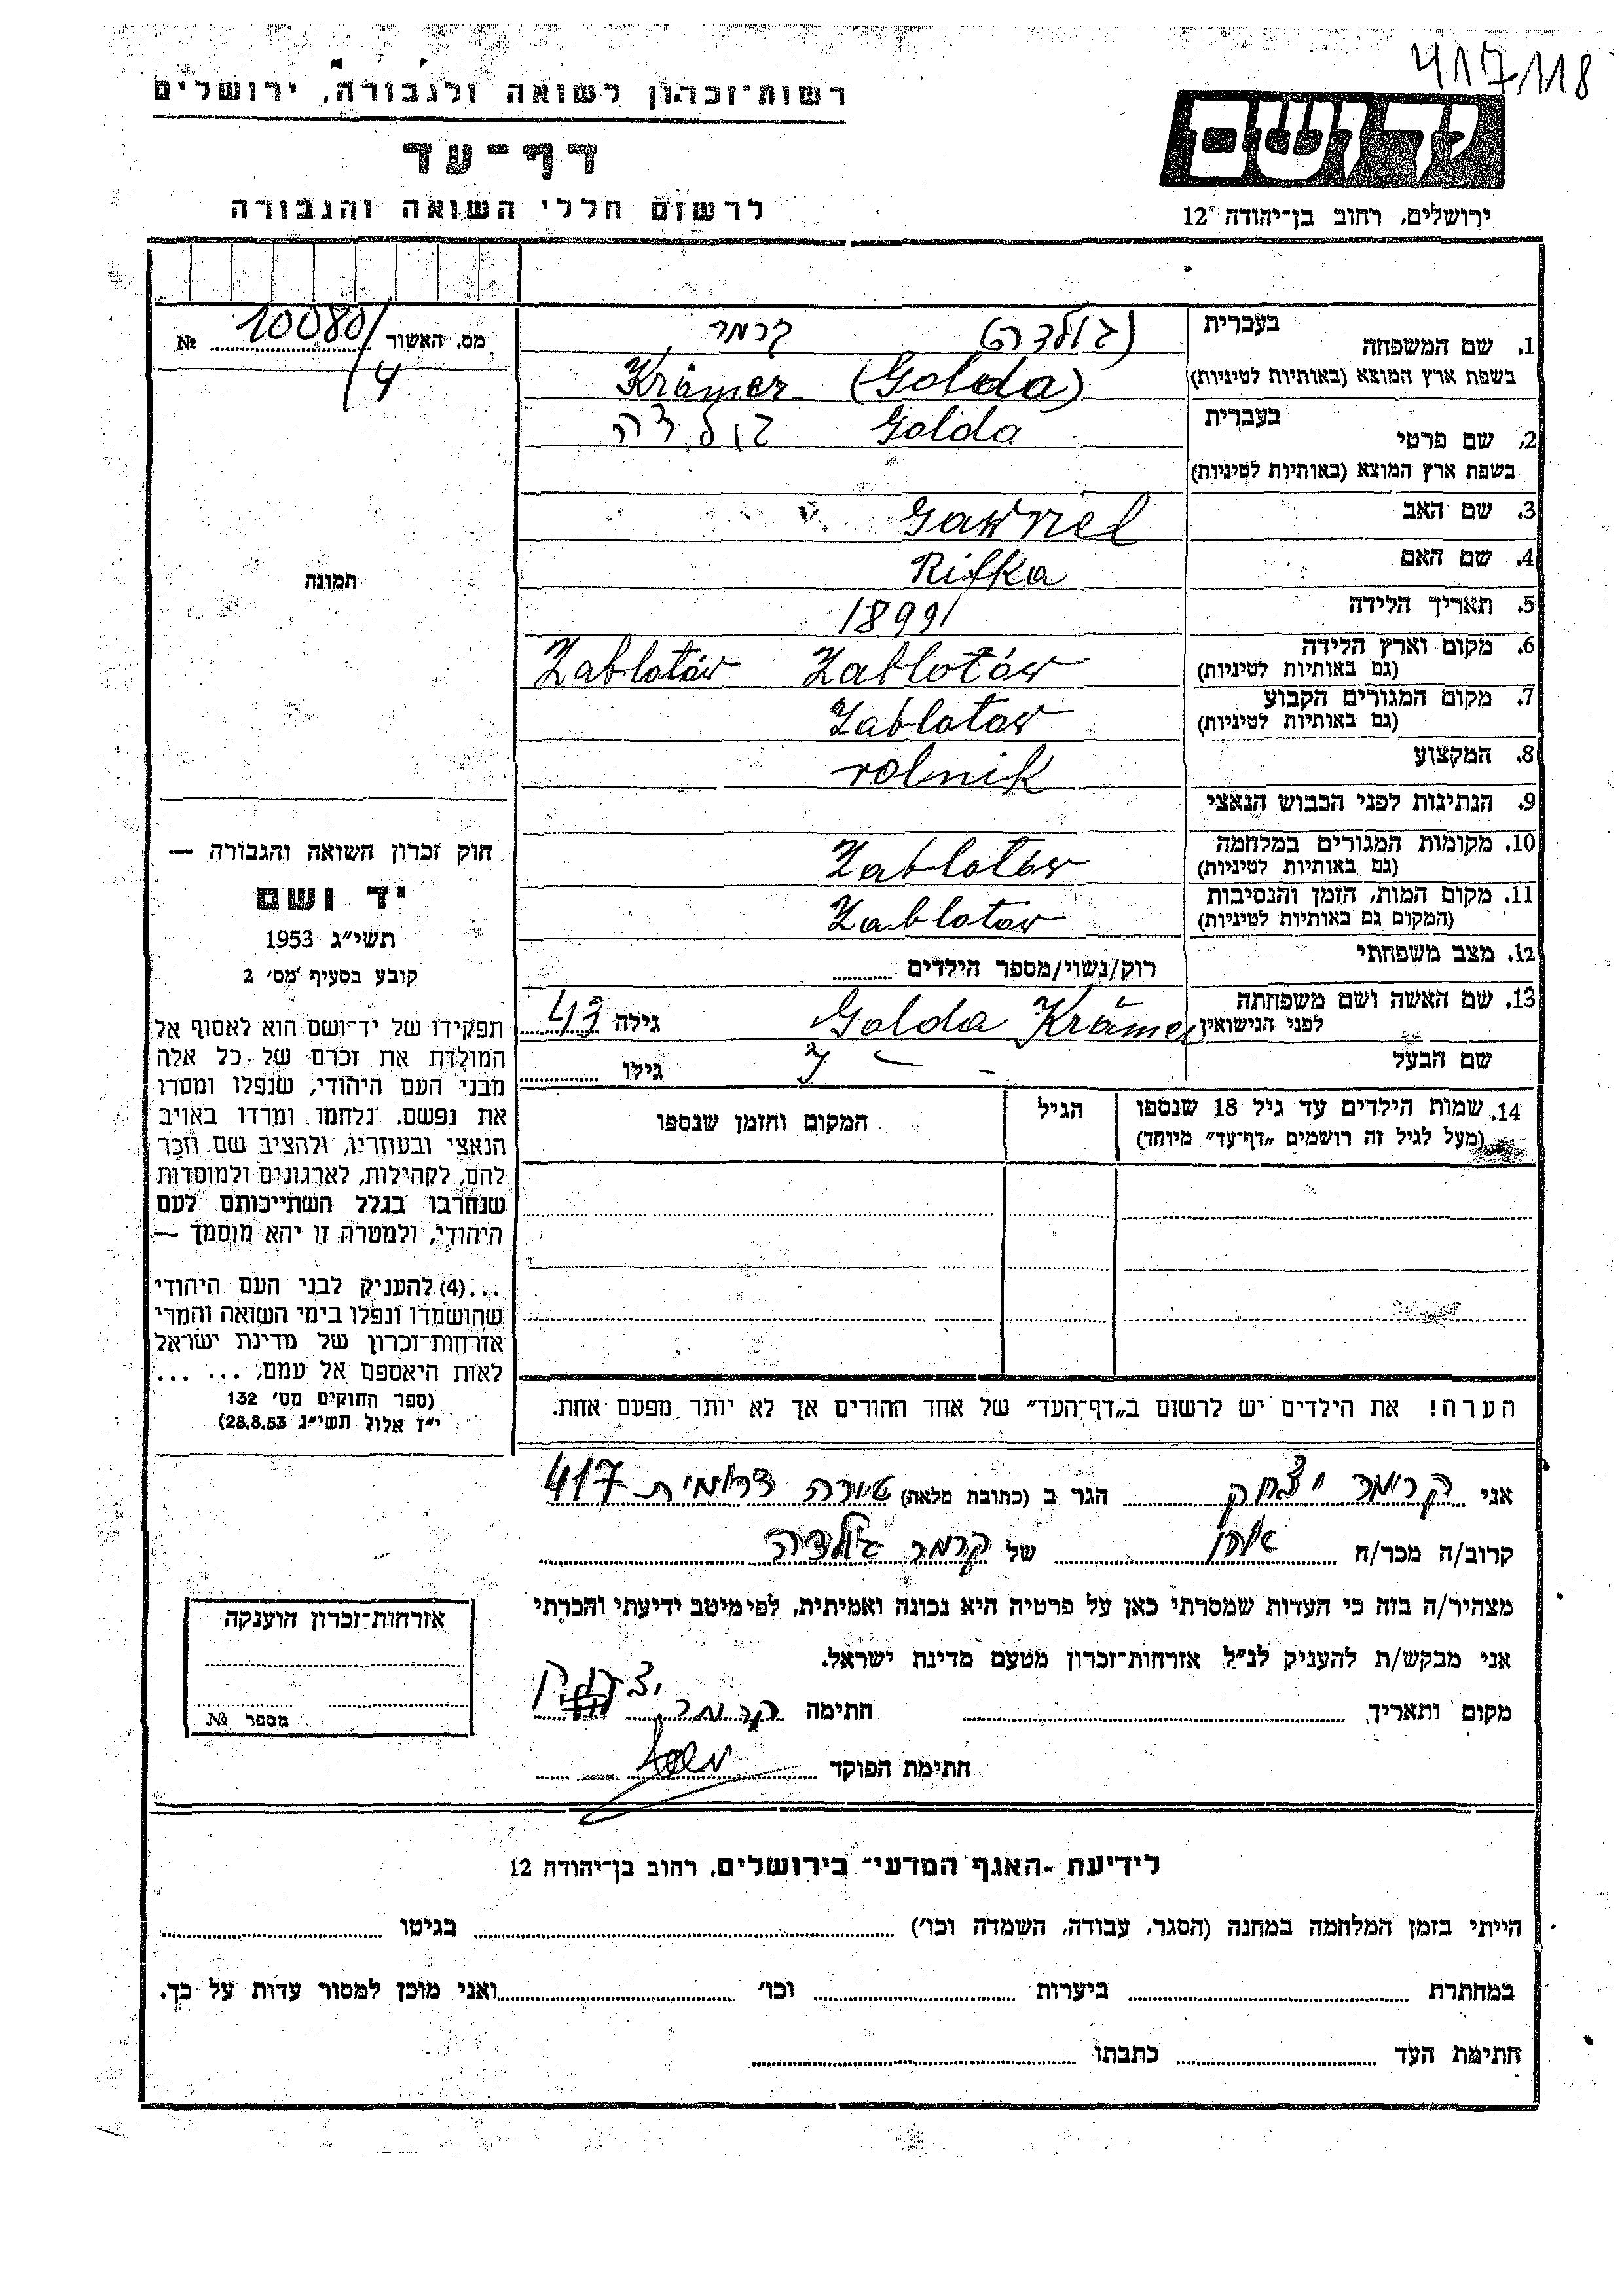 417/118
רשות־זכרון לשואה ולגבורה, ירושלים
דף־עד
לרשום חללי השואה והגבורה
יד ושם
ירושלים, רחוב בן־יהודה 12
מס. האשור 10080/4 №
תמונה
חוק זכרון השואה והגבורה —
יד ושם
תשי״ג 1953
קובע בסעיף מס׳ 2
תפקידו של יד־ושם הוא לאסוף אל
המולדת את זכרם של כל אלה
מבני העם היהודי, שנפלו ומסרו
את נפשם, נלחמו ומרדו באויב
הנאצי ובעוזריו, ולהציב שם וזכר
להם, לקהילות, לארגונים ולמוסדות
שנחרבו בגלל השתייכותם לעם
היהודי, ולמטרה זו יהא מוסמך —
...(4) להעניק לבני העם היהודי
שהושמדו ונפלו בימי השואה והמרי
אזרחות־זכרון של מדינת ישראל
לאות היאספם אל עמם, ... ...
(ספר החוקים מס׳ 132
י״ז אלול תשי״ג 28.8.53)
1. שם המשפחה בעברית קרמר
בשפת ארץ המוצא (באותיות לטיניות) Krämer (Golda)
2. שם פרטי בעברית Golda גולדה
בשפת ארץ המוצא (באותיות לטיניות)
3. שם האב Gawriel
4. שם האם Rifka
5. תאריך הלידה 1899
6. מקום וארץ הלידה (גם באותיות לטיניות) Zablotów Zablotów
7. מקום המגורים הקבוע (גם באותיות לטיניות) Zablotow
8. המקצוע rolnik
9. הנתינות לפני הכבוש הנאצי
10. מקומות המגורים במלחמה (גם באותיות לטיניות) Zablotów
11. מקום המות, הזמן והנסיבות (המקום גם באותיות לטיניות) Zablotow
12. מצב משפחתי רוק/נשוי/מספר הילדים
13. שם האשה ושם משפחתה לפני הנישואין Golda Krämer גילה 43
שם הבעל גילו
14. שמות הילדים עד גיל 18 שנספו הגיל המקום והזמן שנספו
(מעל לגיל זה רושמים „דף־עד״ מיוחד)
הערה! את הילדים יש לרשום ב„דף־העד״ של אחד ההורים אך לא יותר מפעם אחת.
אני קרמר יצחק הגר ב (כתובת מלאה) טירה דרומית 417
קרוב/ה מכר/ה של קרמר גולדה
מצהיר/ה בזה כי העדות שמסרתי כאן על פרטיה היא נכונה ואמיתית, לפי מיטב ידיעתי והכרתי
אני מבקש/ת להעניק לנ״ל אזרחות־זכרון מטעם מדינת ישראל.
מקום ותאריך חתימה קרמר יצחק
חתימת הפוקד
אזרחות־זכרון הוענקה
מספר №
לידיעת ־האגף המדעי־ בירושלים, רחוב בן־יהודה 12
הייתי בזמן המלחמה במחנה (הסגר, עבודה, השמדה וכו׳) בגיטו
במחתרת ביערות וכו׳ ואני מוכן למסור עדות על כך.
חתימת העד כתבתו